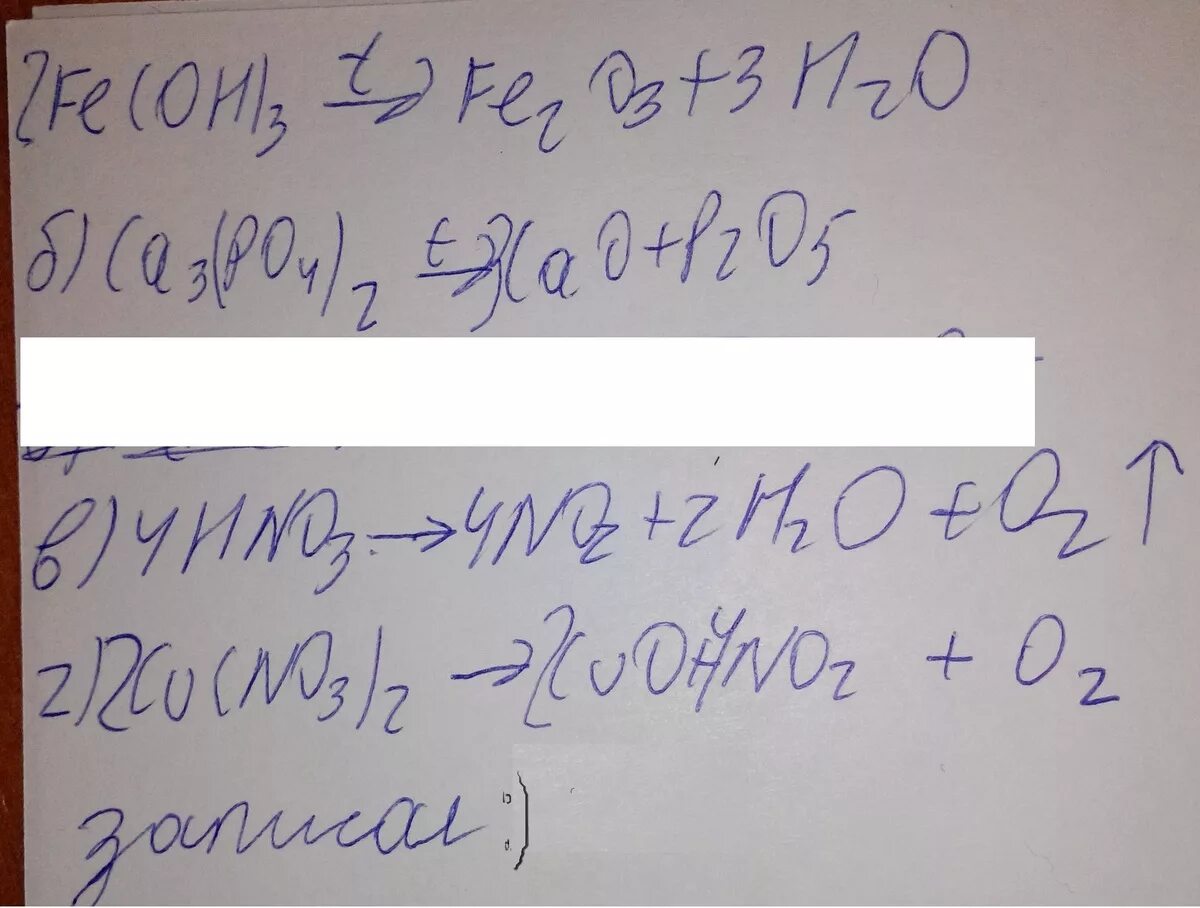 2Fe(OH)3 t→ Fe2O3+3H2O
б) Ca3(PO4)2 t→ 3CaO+P2O5
в) 4HNO3 → 4NO2 + 2H2O + O2↑
г) 2Cu(NO3)2 → 2CuO+4NO2 + O2
записал :)